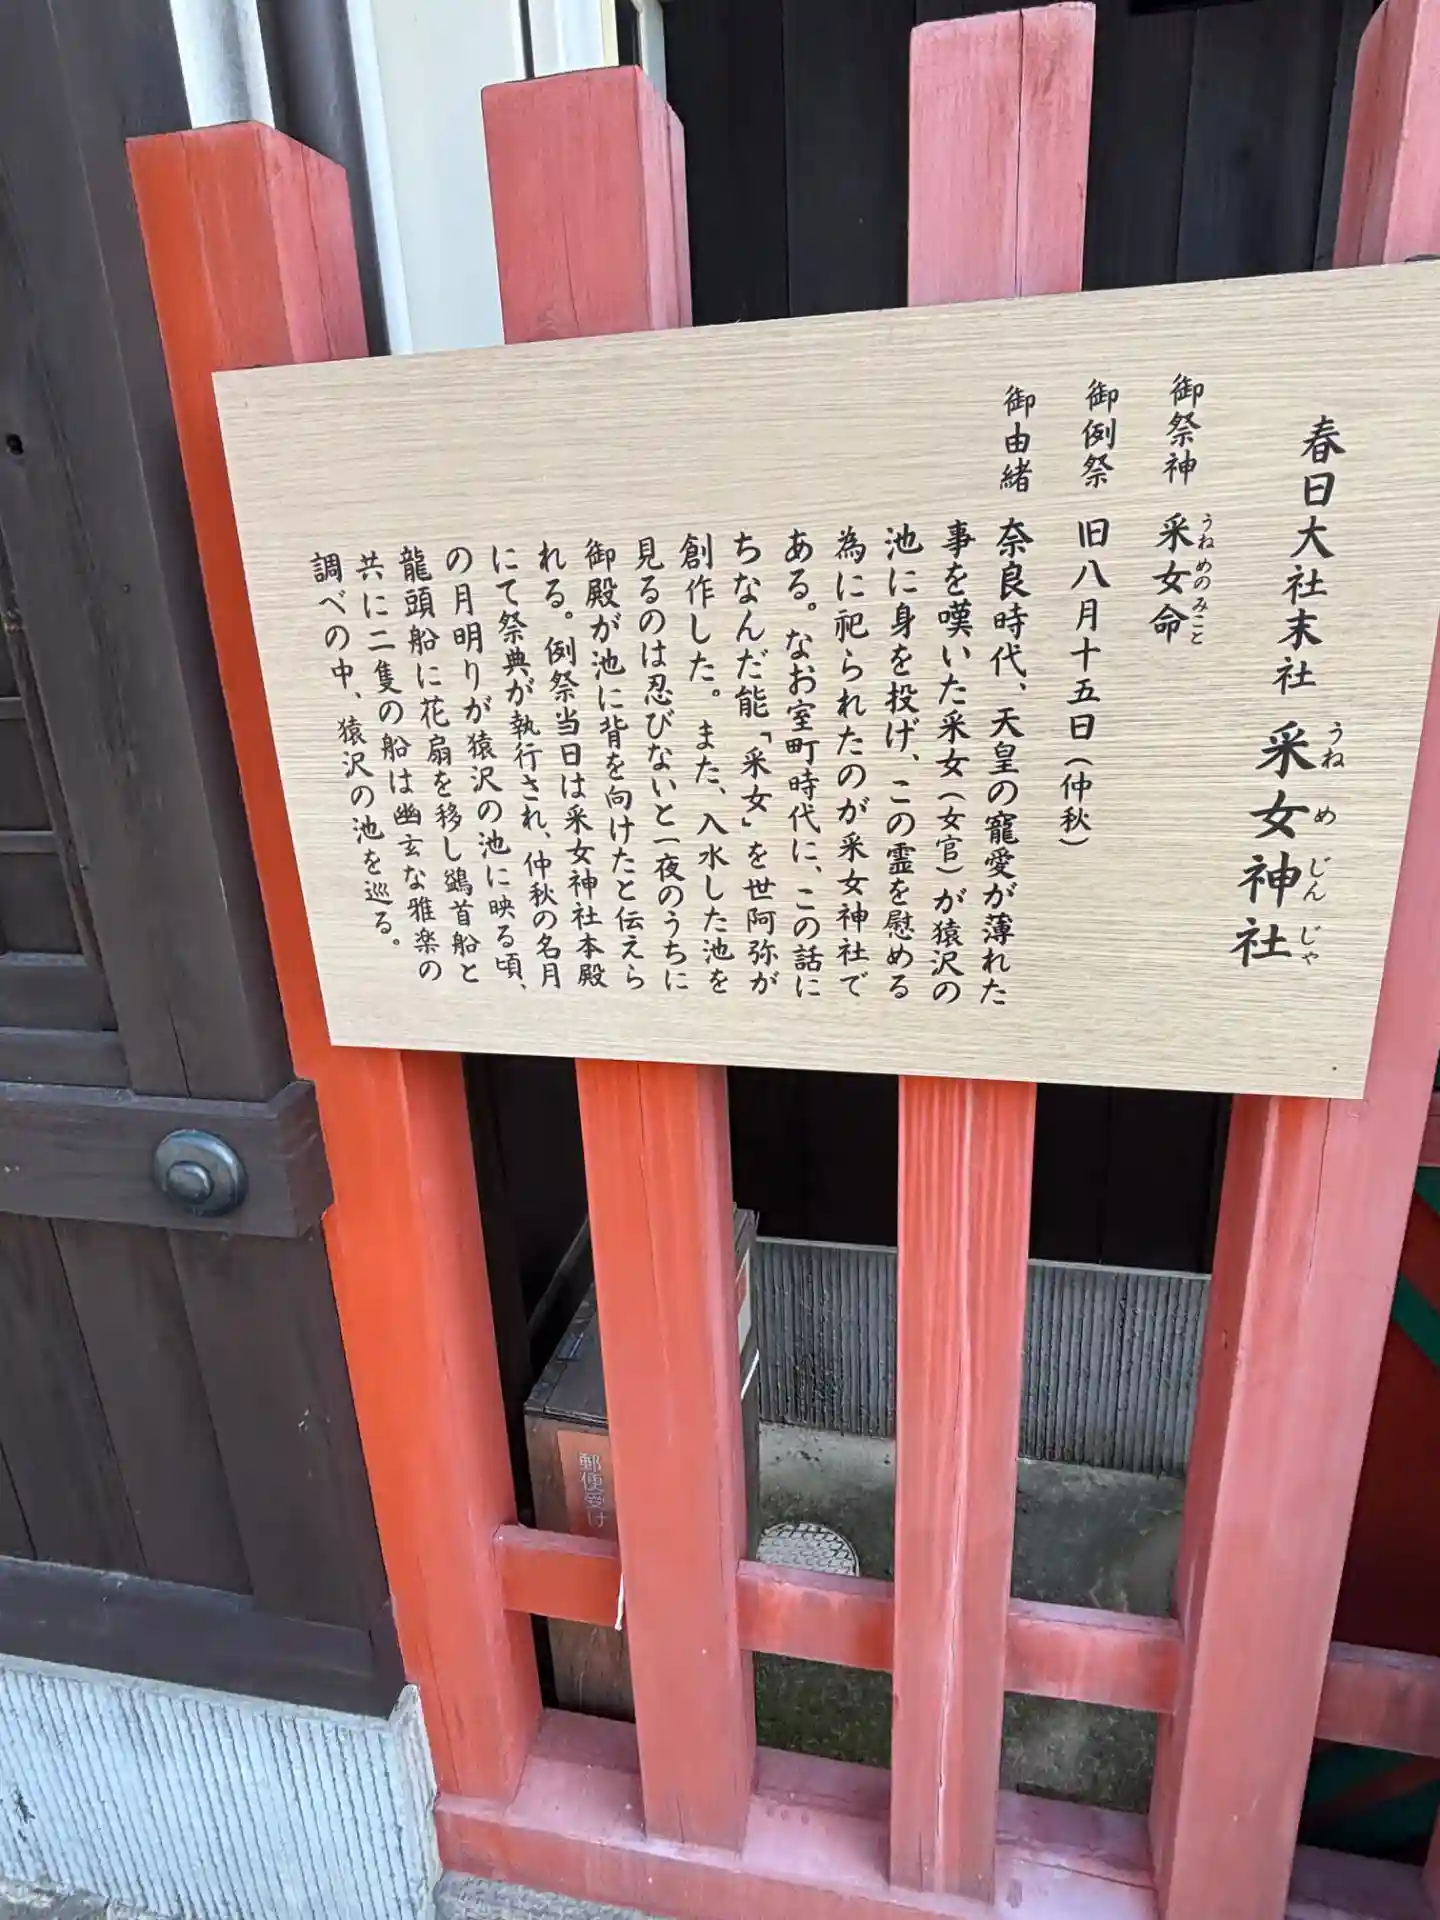 春日大社末社 采女神社
うねめじんじゃ
御祭神 采女命
うねめのみこと
御例祭 旧八月十五日(仲秋)
御由緒 奈良時代、天皇の寵愛が薄れた
事を嘆いた采女(女官)が猿沢の
池に身を投げ、この霊を慰める
為に祀られたのが采女神社で
ある。なお室町時代に、この話に
ちなんだ能「采女」を世阿弥が
創作した。また、入水した池を
見るのは忍びないと一夜のうちに
御殿が池に背を向けたと伝えら
れる。例祭当日は采女神社本殿
にて祭典が執行され、仲秋の名月
の月明りが猿沢の池に映る頃、
龍頭船に花扇を移し鷁首船と
共に二隻の船は幽玄な雅楽の
調べの中、猿沢の池を巡る。
郵便受け